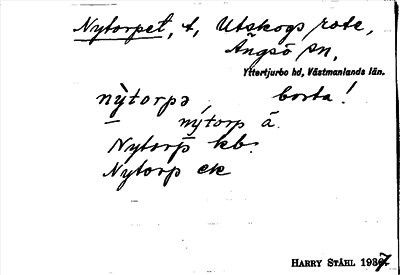 Nytorpet, t, Utskogs rote,
Ängsö sn,
Yttertjurbo hd, Västmanlands län.
nỳtorpə, borta!
nýtorp å
Nytorp kb.
Nytorp ek
HARRY STÅHL 1937